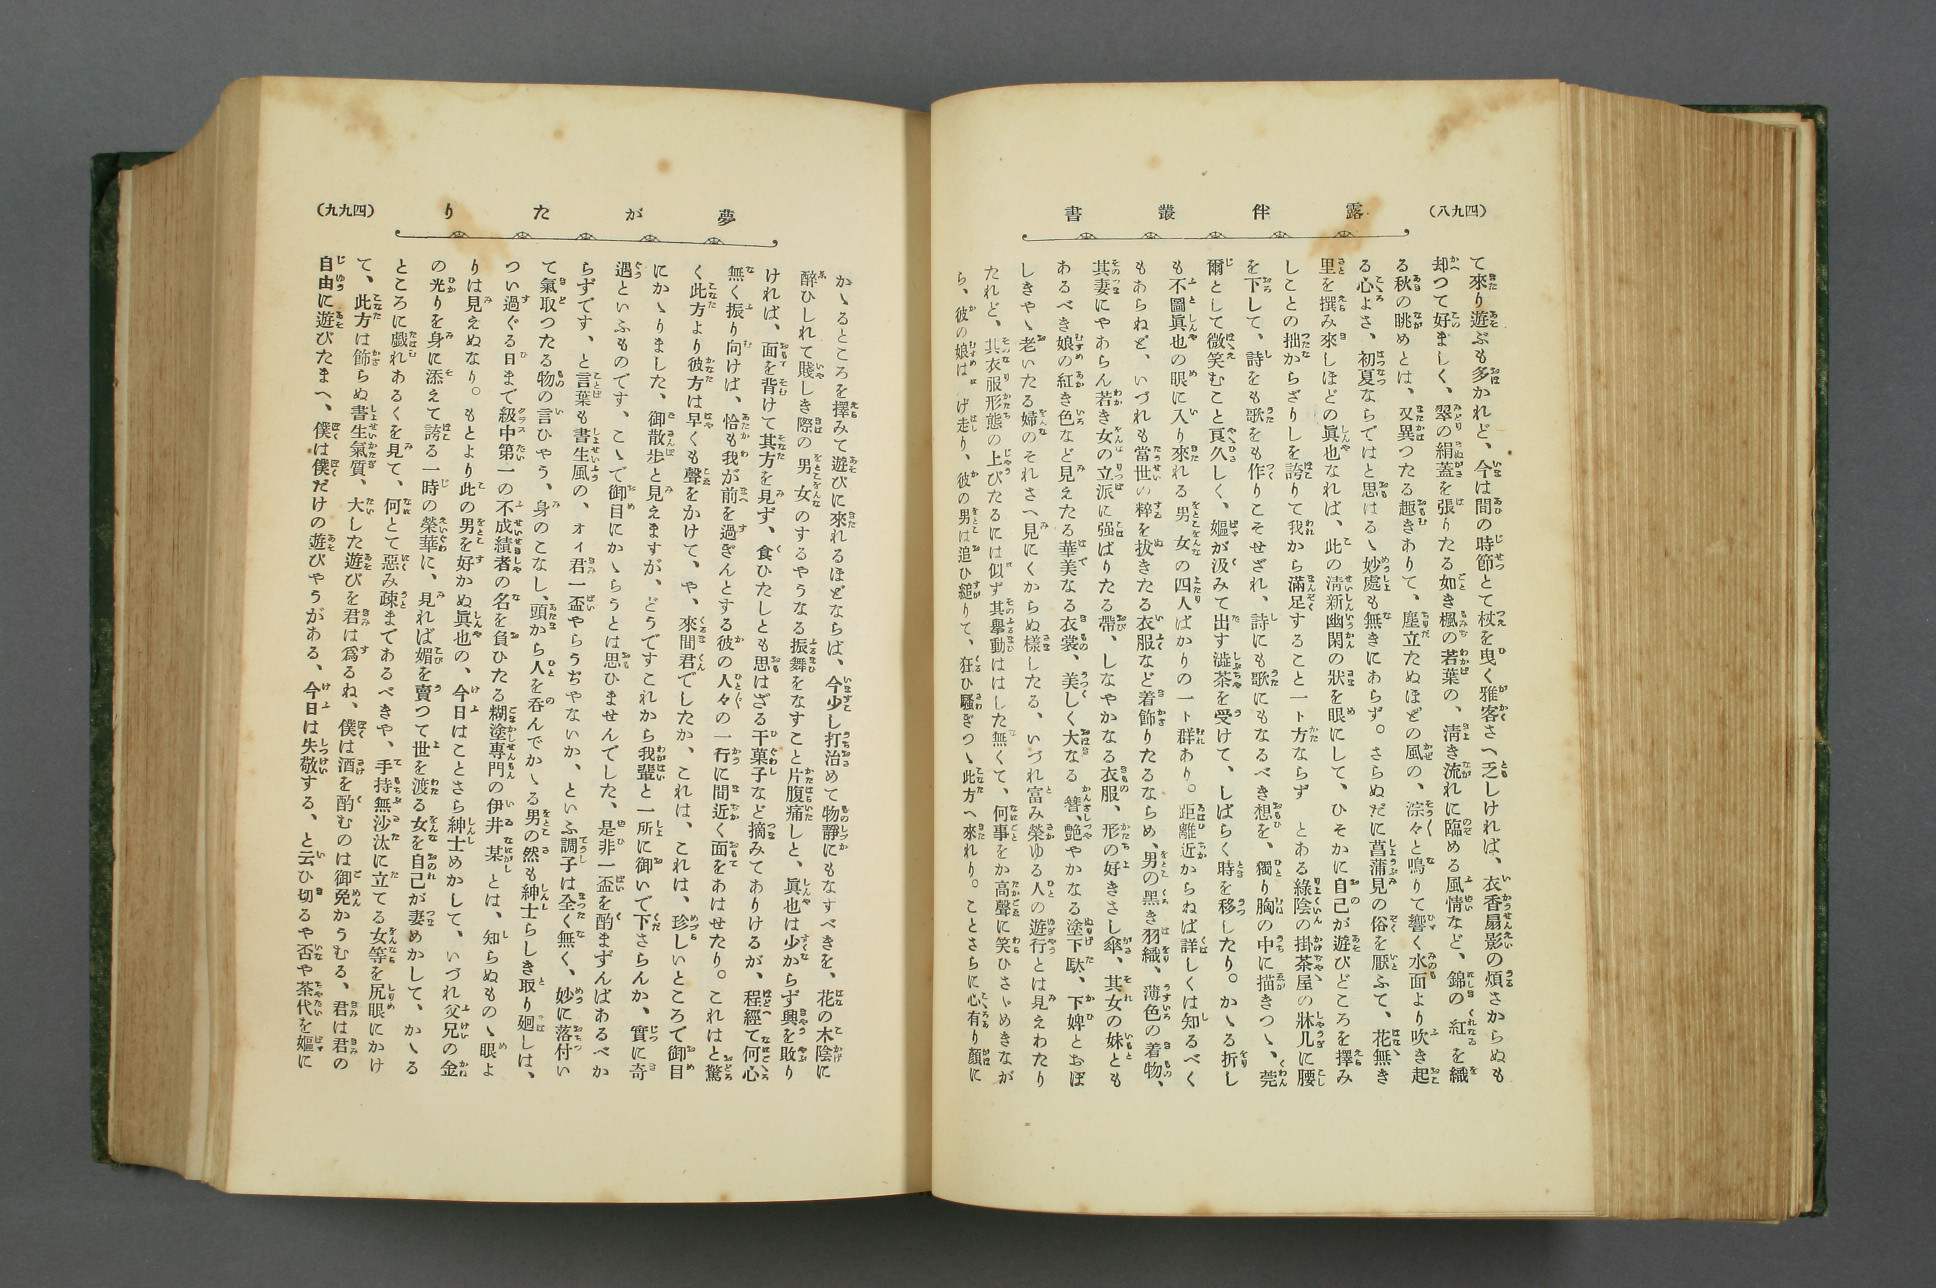 (四九八)
露伴叢書
て來り遊ぶも多かれど、今は間の時節とて杖を曳く雅客さへ乏しければ、衣香扇影の煩さからぬも
却つて好ましく、翠の絹蓋を張りたる如き楓の若葉の、淸き流れに臨める風情など、錦の紅を織
る秋の眺めとは、又異つたる趣きありて、塵立たぬほどの風の、淙々と鳴りて響く水面より吹き起
る心よさ、初夏ならではと思はるゝ妙處も無きにあらず。さらぬだに菖蒲見の俗を厭ふて、花無き
里を撰み來しほどの眞也なれば、此の淸新幽閑の狀を眼にして、ひそかに自己が遊びどころを擇み
しことの拙からざりしを誇りて我から滿足すること一ト方ならず とある綠陰の掛茶屋の牀几に腰
を下して、詩をも歌をも作りこそせざれ、詩にも歌にもなるべき想を、獨り胸の中に描きつゝ、莞
爾として微笑むこと良久しく、嫗が汲みて出す澁茶を受けて、しばらく時を移したり。かゝる折し
も不圖眞也の眼に入り來れる男女の四人ばかりの一ト群あり。距離近からねば詳しくは知るべく
もあらねど、いづれも當世の粹を拔きたる衣服など着飾りたるならめ、男の黑き羽織、薄色の着物、
其妻にやあらん若き女の立派に强ばりたる帶、しなやかなる衣服、形の好きさし傘、其女の妹とも
あるべき娘の紅き色など見えたる華美なる衣裳、美しく大なる簪、艷やかなる塗下駄、下婢とおぼ
しきやゝ老いたる婦のそれさへ見にくからぬ樣したる、いづれ富み榮ゆる人の遊行とは見えわたり
たれど、其衣服形態の上びたるには似ず其擧動ははした無くて、何事をか高聲に笑ひさゞめきなが
ら、彼の娘は げ走り、彼の男は追ひ縋りて、狂ひ騷ぎつゝ此方へ來れり。ことさらに心有り顏に
(四九九)
夢がたり
かゝるところを擇みて遊びに來れるほどならば、今少し打治めて物靜にもなすべきを、花の木陰に
醉ひしれて賤しき際の男女のするやうなる振舞をなすこと片腹痛しと、眞也は少からず興を敗り
ければ、面を背けて其方を見ず、食ひたしとも思はざる干菓子など摘みてありけるが、程經て何心
無く振り向けば、恰も我が前を過ぎんとする彼の人々の一行に間近く面をあはせたり。これはと驚
く此方より彼方は早くも聲をかけて、や、來間君でしたか、これは、これは、珍しいところで御目
にかゝりました、御散步と見えますが、どうですこれから我輩と一所に御いで下さらんか、實に奇
遇といふものです、こゝで御目にかゝらうとは思ひませんでした、是非一盃を酌まずんばあるべか
らずです、と言葉も書生風の、オイ君一盃やらうぢやないか、といふ調子は全く無く、妙に落付い
て氣取つたる物の言ひやう、身のこなし、頭から人を呑んでかゝる男の然も紳士らしき取り廻しは、
つい過ぐる日まで級中第一の不成績者の名を負ひたる糊塗專門の伊井某とは、知らぬものゝ眼よ
りは見えぬなり。もとより此の男を好かぬ眞也の、今日はことさら紳士めかして、いづれ父兄の金
の光りを身に添えて誇る一時の榮華に、見れば媚を賣つて世を渡る女を自己が妻めかして、かゝる
ところに戲れあるくを見て、何とて惡み疎まであるべきや、手持無沙汰に立てる女等を尻眼にかけ
て、此方は飾らぬ書生氣質、大した遊びを君は爲るね、僕は酒を酌むのは御免かうむる、君は君の
自由に遊びたまへ、僕は僕だけの遊びやうがある、今日は失敬する、と云ひ切るや否や茶代を嫗に